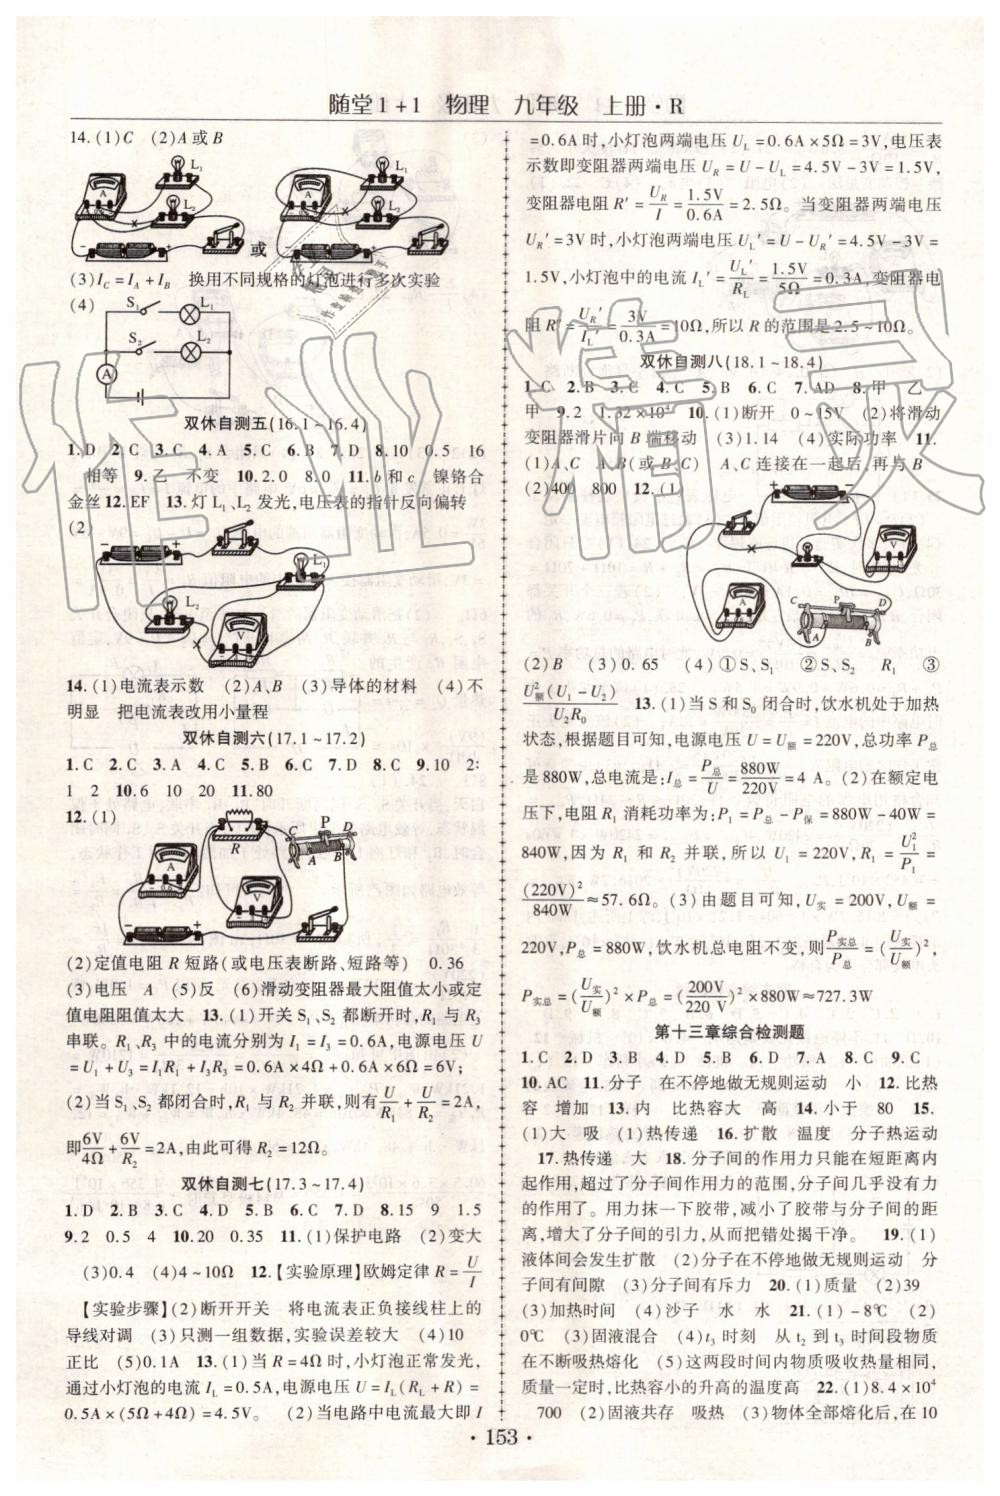 随堂1+1 物理 九年级 上册·R
14.(1)C (2)A或B
L₁
L₂
A
或
(3)I_C=I_A+I_B 换用不同规格的灯泡进行多次实验
(4)
S₁ L₁
S₂ L₂
A
双休自测五(16.1~16.4)
1.D 2.C 3.C 4.A 5.C 6.B 7.D 8.10 0.5 16
相等 9.乙 不变 10.2.0 8.0 11.b和c 镍铬合
金丝 12.EF 13.灯L₁、L₂发光,电压表的指针反向偏转
(2)
L₁
L₂
V
14.(1)电流表示数 (2)A、B (3)导体的材料 (4)不
明显 把电流表改用小量程
双休自测六(17.1~17.2)
1.C 2.C 3.A 4.D 5.C 6.B 7.D 8.C 9.10 2:
1 2 10.6 10 20 11.80
12.(1)
R
C P D
A B
A
V
(2)定值电阻R短路(或电压表断路、短路等) 0.36
(3)电压 A (5)反 (6)滑动变阻器最大阻值太小或定
值电阻阻值太大 13.(1)开关S₁、S₂都断开时,R₁与R₃
串联。R₁、R₃中的电流分别为I₁=I₃=0.6A,电源电压U
=U₁+U₃=I₁R₁+I₃R₃=0.6A×4Ω+0.6A×6Ω=6V;
(2)当S₁、S₂都闭合时,R₁与R₂并联,则有U/R₁+U/R₂=2A,
即6V/4Ω+6V/R₂=2A,由此可得R₂=12Ω。
双休自测七(17.3~17.4)
1.D 2.B 3.C 4.C 5.D 6.C 7.D 8.15 9 1.5
9.2 0.5 4 10.20 0.35 11.(1)保护电路 (2)变大
(3)0.4 (4)4~10Ω 12.【实验原理】欧姆定律R=U/I
【实验步骤】(2)断开开关 将电流表正负接线柱上的
导线对调 (3)只测一组数据,实验误差较大 (4)10
正比 (5)0.1A 13.(1)当R=4Ω时,小灯泡正常发光,
通过小灯泡的电流I_L=0.5A,电源电压U=I_L(R_L+R)=
0.5A×(5Ω+4Ω)=4.5V。 (2)当电路中电流最大即I
=0.6A时,小灯泡两端电压U_L=0.6A×5Ω=3V,电压表
示数即变阻器两端电压U_R=U-U_L=4.5V-3V=1.5V,
变阻器电阻R′=U_R/I=1.5V/0.6A=2.5Ω。当变阻器两端电压
U_R′=3V时,小灯泡两端电压U_L′=U-U_R′=4.5V-3V=
1.5V,小灯泡中的电流I_L′=U_L′/R_L=1.5V/5Ω=0.3A,变阻器电
阻R′=U_R′/I_L′=3V/0.3A=10Ω,所以R的范围是2.5~10Ω。
双休自测八(18.1~18.4)
1.C 2.B 3.C 4.D 5.B 6.C 7.AD 8.甲 乙
甲 9.2 1.32×10⁴ 10.(1)断开 0~15V (2)将滑动
变阻器滑片向B端移动 (3)1.14 (4)实际功率 11.
(1)A、C A、B(或B、C) A、C连接在一起后,再与B
(2)400 800 12.(1)
A
V
C P D
A B
(2)B (3)0.65 (4)①S、S₁ ②S、S₂ R₁ ③
U²额(U₁-U₂)/U₂R₀ 13.(1)当S和S₀闭合时,饮水机处于加热
状态,根据题目可知,电源电压U=U额=220V,总功率P总
是880W,总电流是:I总=P总/U=880W/220V=4A。(2)在额定电
压下,电阻R₁消耗功率为:P₁=P总-P保=880W-40W=
840W,因为R₁和R₂并联,所以U₁=220V,R₁=U₁²/P₁=
(220V)²/840W≈57.6Ω。(3)由题目可知,U实=200V,U额=
220V,P总=880W,饮水机总电阻不变,则P实总/P总=(U实/U额)²,
P实总=(U实/U额)²×P总=(200V/220V)²×880W≈727.3W
第十三章综合检测题
1.C 2.D 3.D 4.D 5.B 6.D 7.A 8.C 9.C
10.AC 11.分子 在不停地做无规则运动 小 12.比热
容 增加 13.内 比热容大 高 14.小于 80 15.
(1)大 吸 (1)热传递 16.扩散 温度 分子热运动
17.热传递 大 18.分子间的作用力只能在短距离内
起作用,超过了分子间作用力的范围,分子间几乎没有力
的作用。用力抹一下胶带,减小了胶带与分子间的距
离,增大了分子间的引力,从而把错处揭干净。 19.(1)
液体间会发生扩散 (2)分子在不停地做无规则运动 分
子间有间隙 (3)分子间有斥力 20.(1)质量 (2)39
(3)加热时间 (4)沙子 水 水 21.(1)-8℃ (2)
0℃ (3)固液混合 (4)t₃时刻 从t₂到t₃时间段物质
在不断吸热熔化 (5)这两段时间内物质吸收热量相同,
质量一定时,比热容小的升高的温度高 22.(1)8.4×10⁴
700 (2)固液共存 吸热 (3)物体全部熔化后,在10
·153·
作业精灵